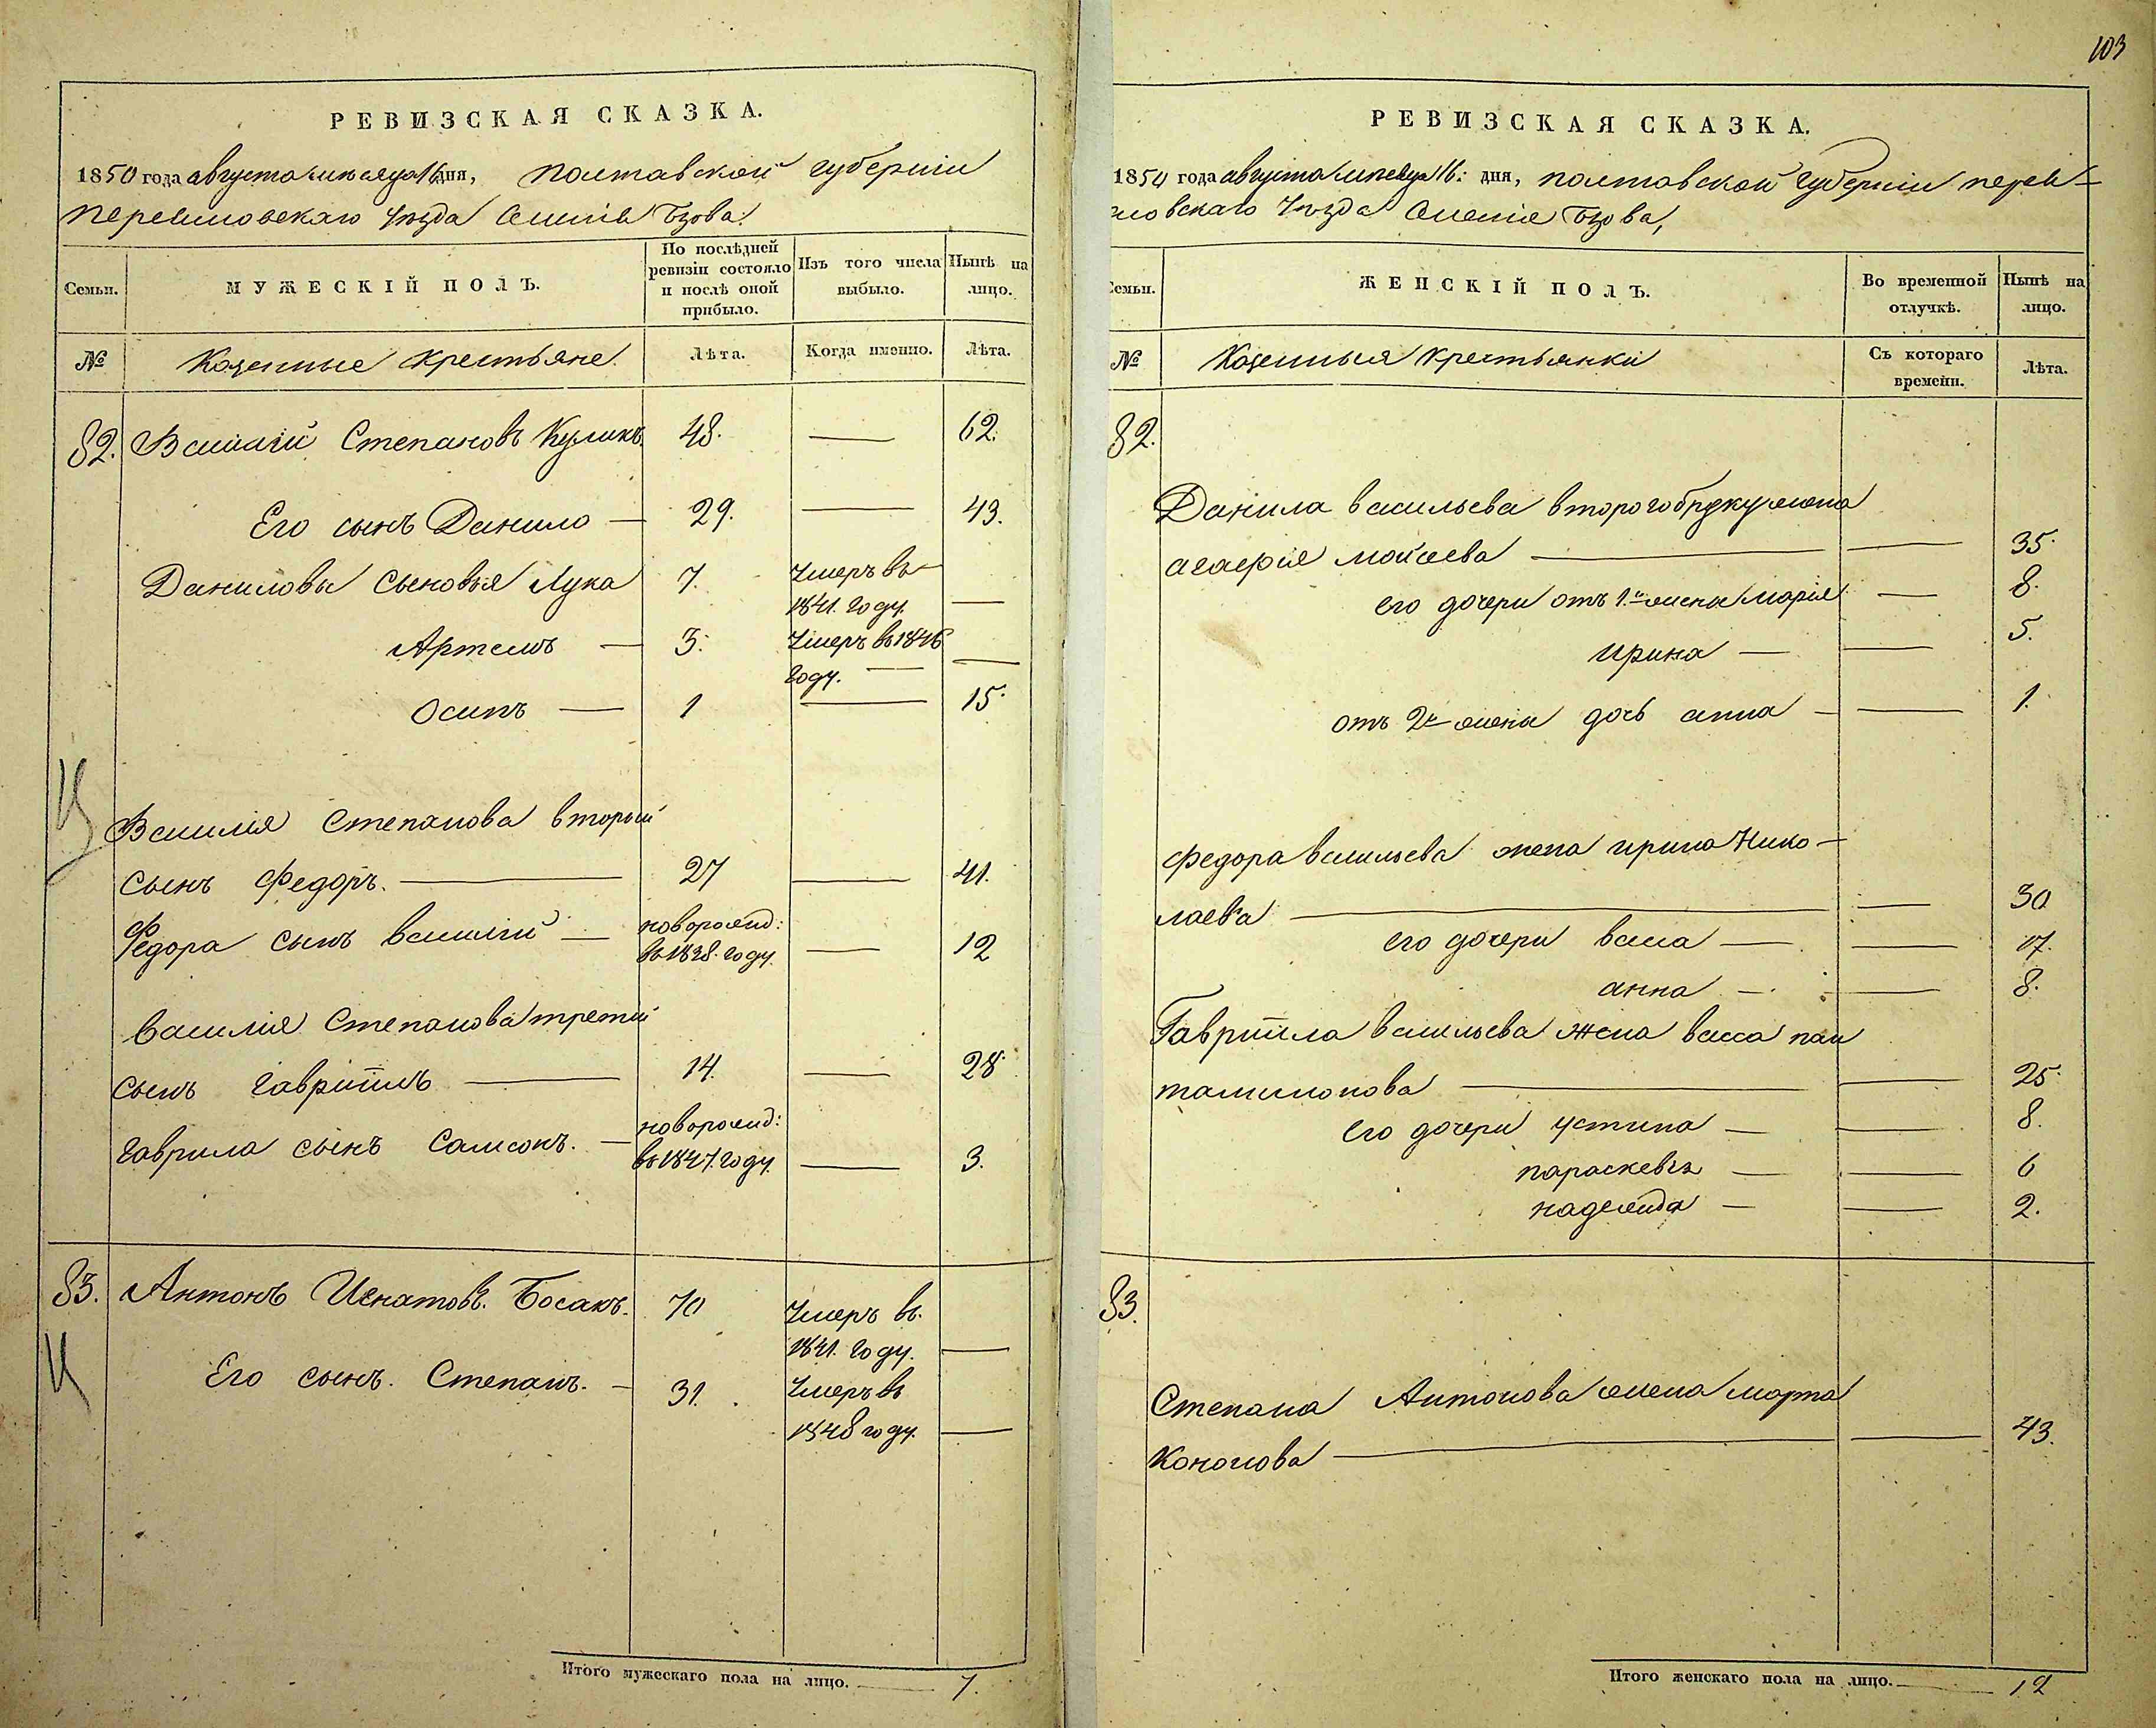 103
РЕВИЗСКАЯ СКАЗКА.
1850 года августа месяца 16 дня, Полтавской губернии
Переяловскаго уѣзда Селенія Бзова.
Семьи.
МУЖЕСКІЙ ПОЛЪ.
По послѣдней ревизіи состояло и послѣ оной прибыло.
Изъ того числа выбыло.
Нынѣ на лицо.
№
Казенные крестьяне.
Лѣта.
Когда именно.
Лѣта.
82. Василій Степановъ Куликъ 48. — 62.
Его сынъ Данило — 29. — 43.
Даниловы сыновья Лука 7. Умеръ въ
1841. году. —
Артемъ — 3. Умеръ въ 1846
году. — —
Осипъ — 1 — 15.
Василія Степанова второй
сынъ Федоръ. — 27 — 41.
Федора сынъ василій — новорожд:
въ 1838. году. — 12
василія Степанова третій
сынъ гавріилъ — 14. — 28.
гаврила сынъ Самсонъ. — новорожд:
въ 1847. году. — 3.
83. Антонъ Игнатовъ. Босакъ. 70 Умеръ въ.
1841. году. —
Его сынъ. Степанъ. — 31. Умеръ въ
1848 году. —
Итого мужескаго пола на лицо. — 7.
РЕВИЗСКАЯ СКАЗКА.
1850 года августа месяца 16: дня, полтавской губерніи перея-
ловскаго уѣзда Селенія Бзова,
Семьи.
ЖЕНСКІЙ ПОЛЪ.
Во временной отлучкѣ.
Нынѣ на лицо.
№
Казенныя крестьянки
Съ котораго времени.
Лѣта.
82.
Данила васильева второго браку жена
агафія мойсеева — — 35.
его дочери отъ 1.й жены марія — 8.
ирина — — 5.
отъ 2й жены дочь анна — — 1.
федора васильева жена ирина Нико-
лаева — — 30
его дочери васса — — 17.
анна — — 8.
Гавріила васильева жена васса пан
талимонова — — 25.
его дочери устина — — 8.
параскевія — — 6
надежда — — 2.
83.
Степана Антонова жена марта
Кононова — — 43.
Итого женскаго пола на лицо. — 12